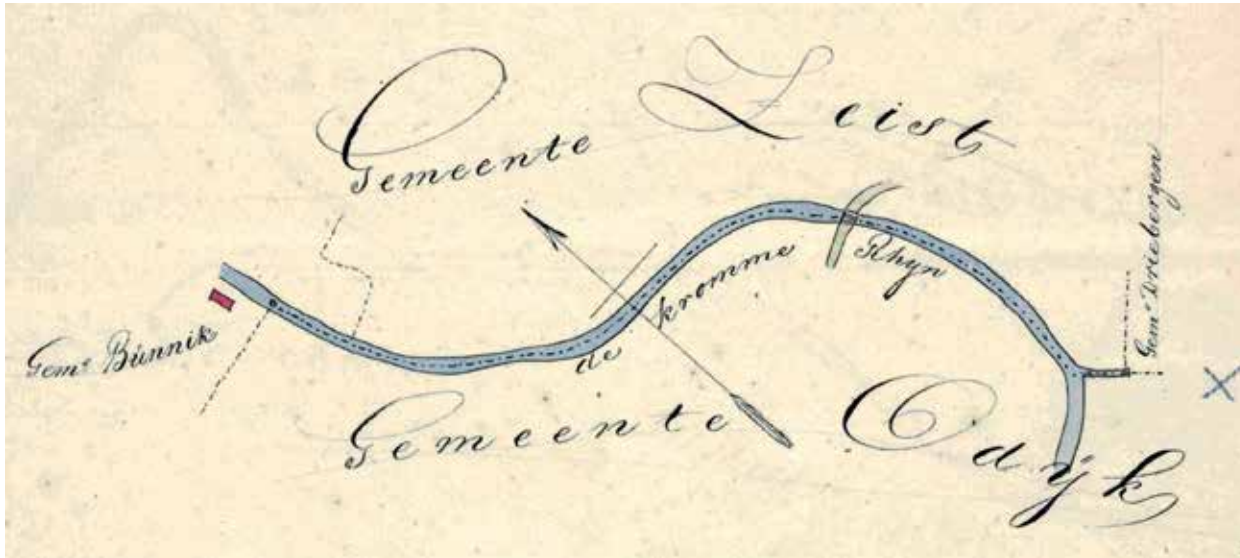 Gemeente Zeist
Gem.e Bunnik
de kromme Rhyn
Gem.e Driebergen
Gemeente Odijk